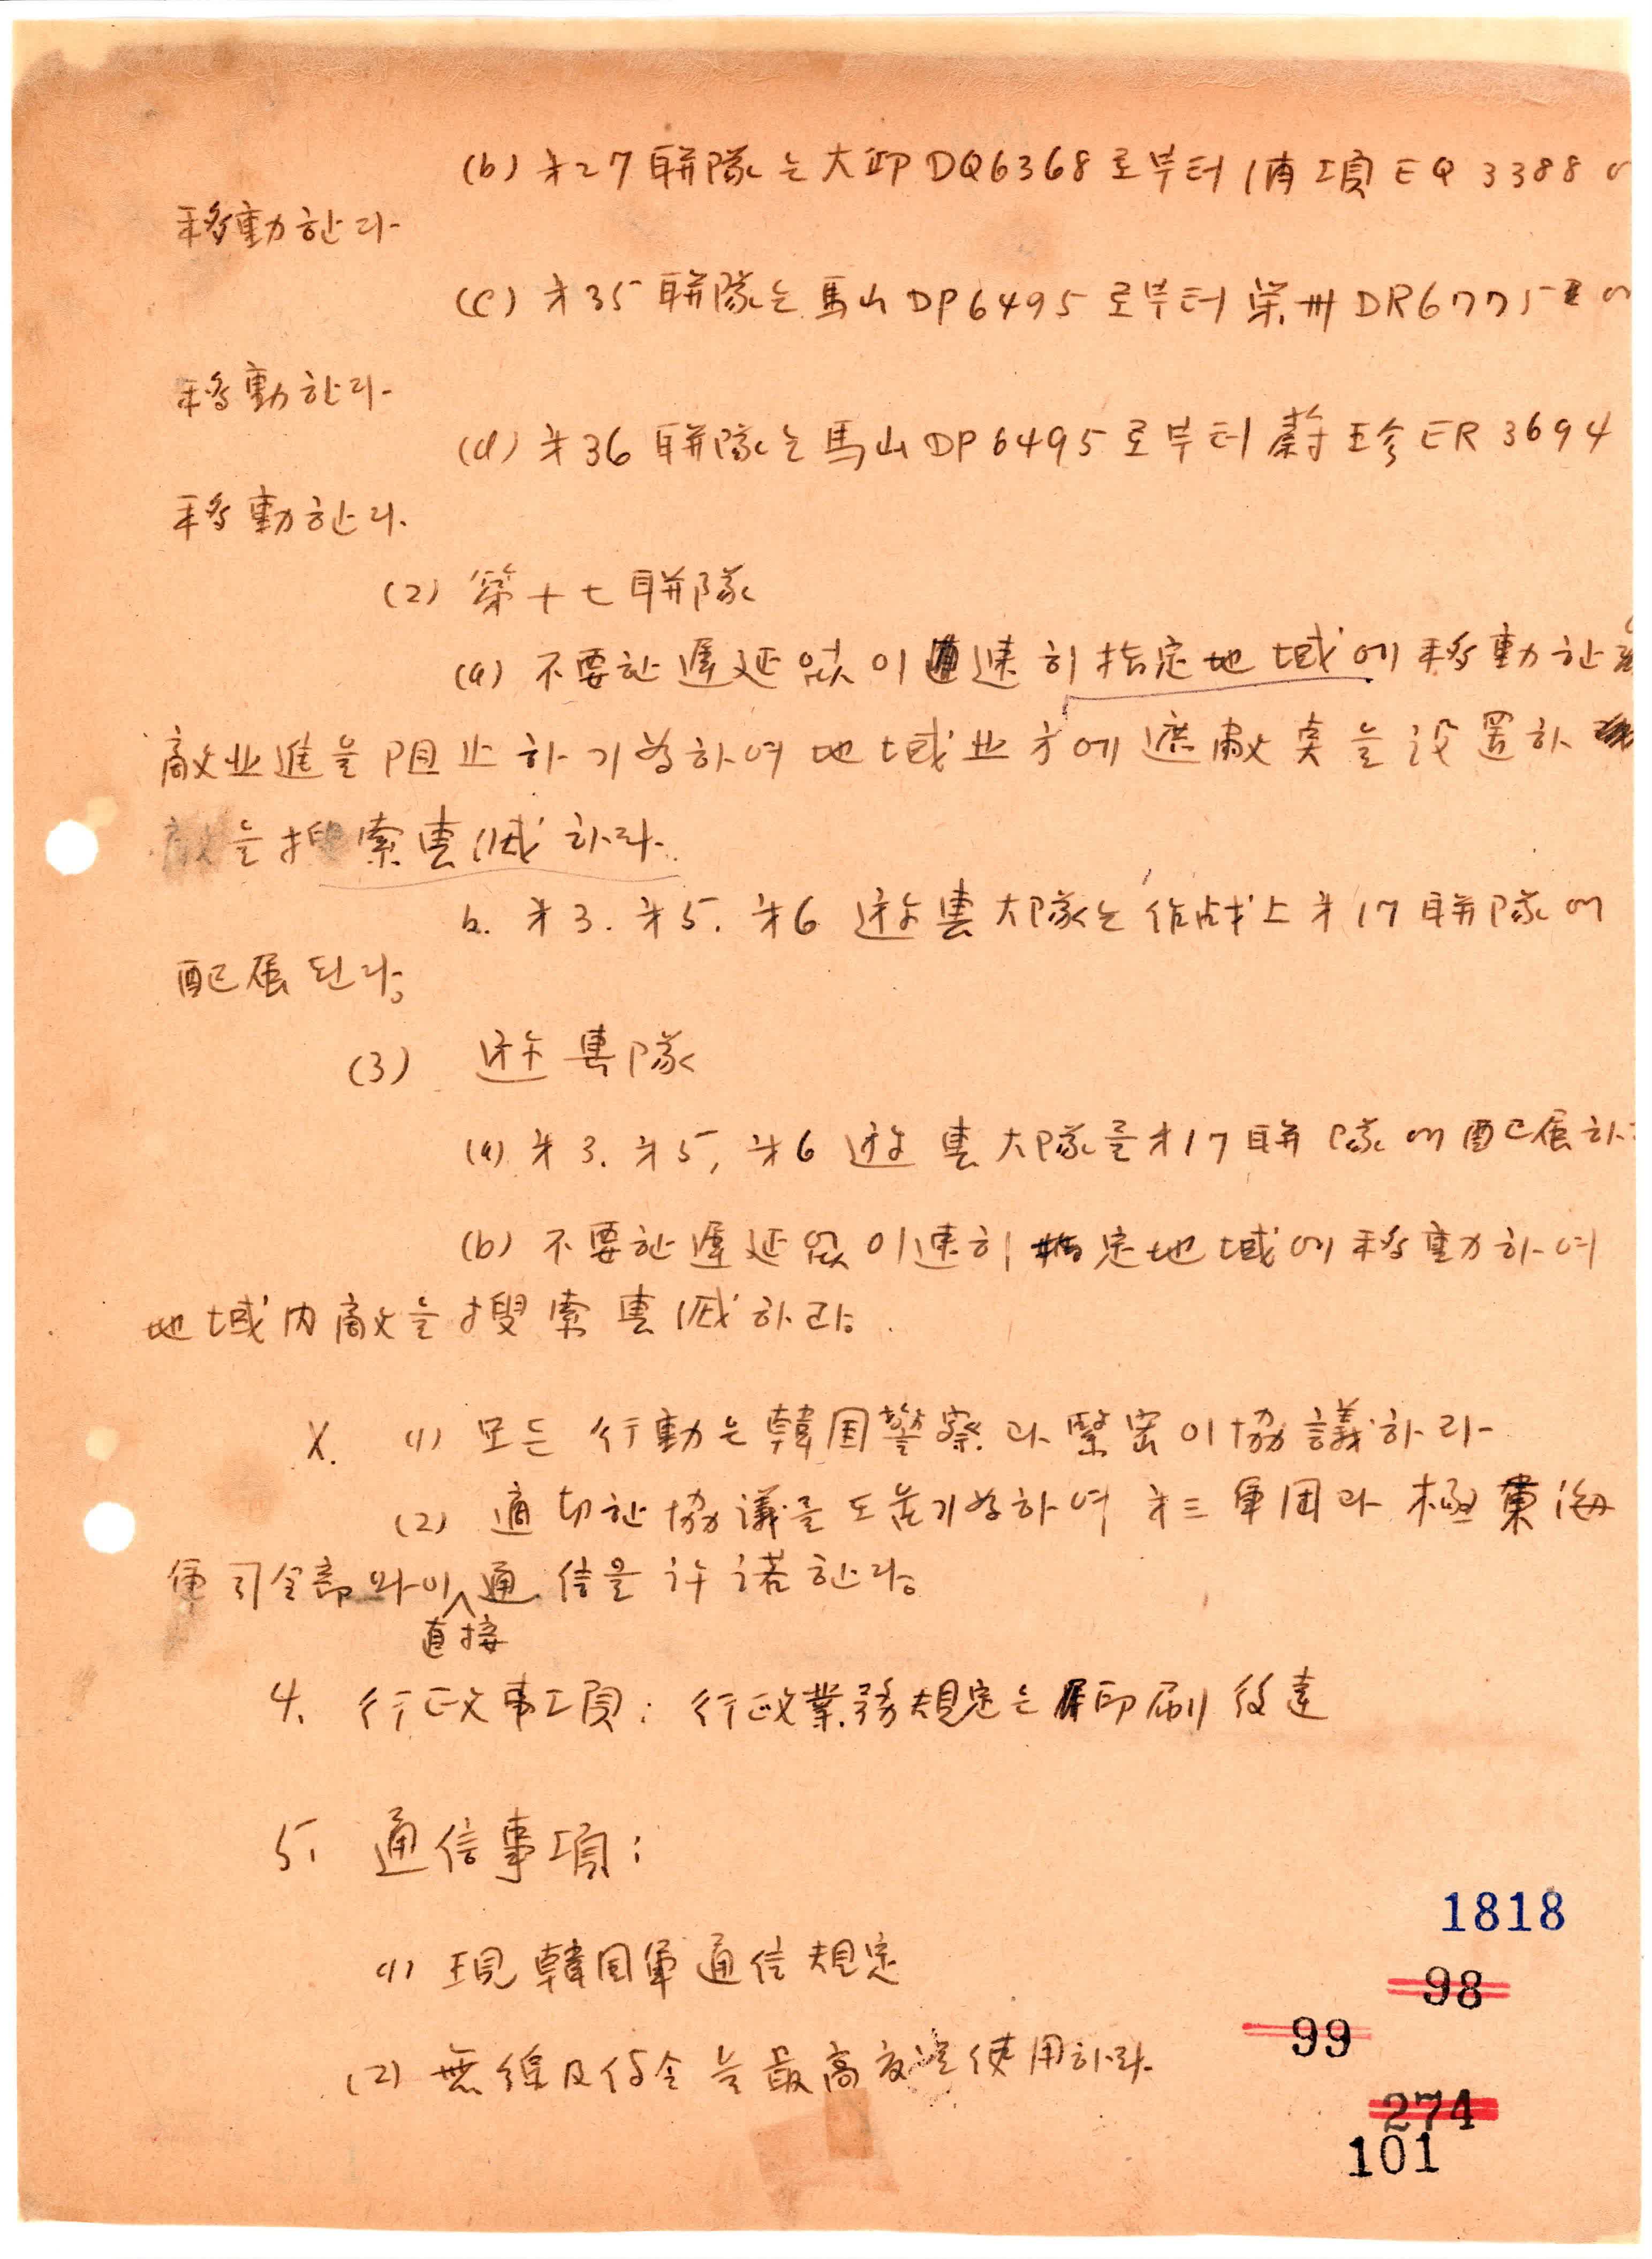 (b) 才27 聯隊는 大邱 DQ6368 로부터 浦項 EQ 3388 에
移動한다
(c) 才35 聯隊는 馬山 DP6495 로부터 榮州 DR6775 에
移動한다
(d) 才36 聯隊는 馬山 DP6495 로부터 蔚珍 ER 3694
移動한다.
(2) 第十七聯隊
(a) 不要한 遲延 없이 速히 指定地域에 移動한
敵北進을 阻止하기 爲하여 地域北方에 遮蔽 을 設置하
敵을 搜索擊滅하라.
b. 才3. 才5. 才6 遊擊大隊는 作战上 才17 聯隊에
配属된다.
(3) 遊擊隊
(a) 才3. 才5, 才6 遊擊大隊를 才17 聯隊에 配属하
(b) 不要한 遲延 없이 速히 指定地域에 移動하여
地域內敵을 搜索擊滅하라.
X. (1) 모든 行動는 韓国警察과 緊密이 協議하라
(2) 適切한 協議를 도웁기 爲하여 才三軍团과 極東海
軍司令部와이 直接 通信을 許諾한다.
4. 行政事項: 行政業務規定는 印刷後達
5. 通信事項:
(1) 現韓国軍通信規定
(2) 無線及 을 最高度로 使用하라.
1818
98
99
274
101